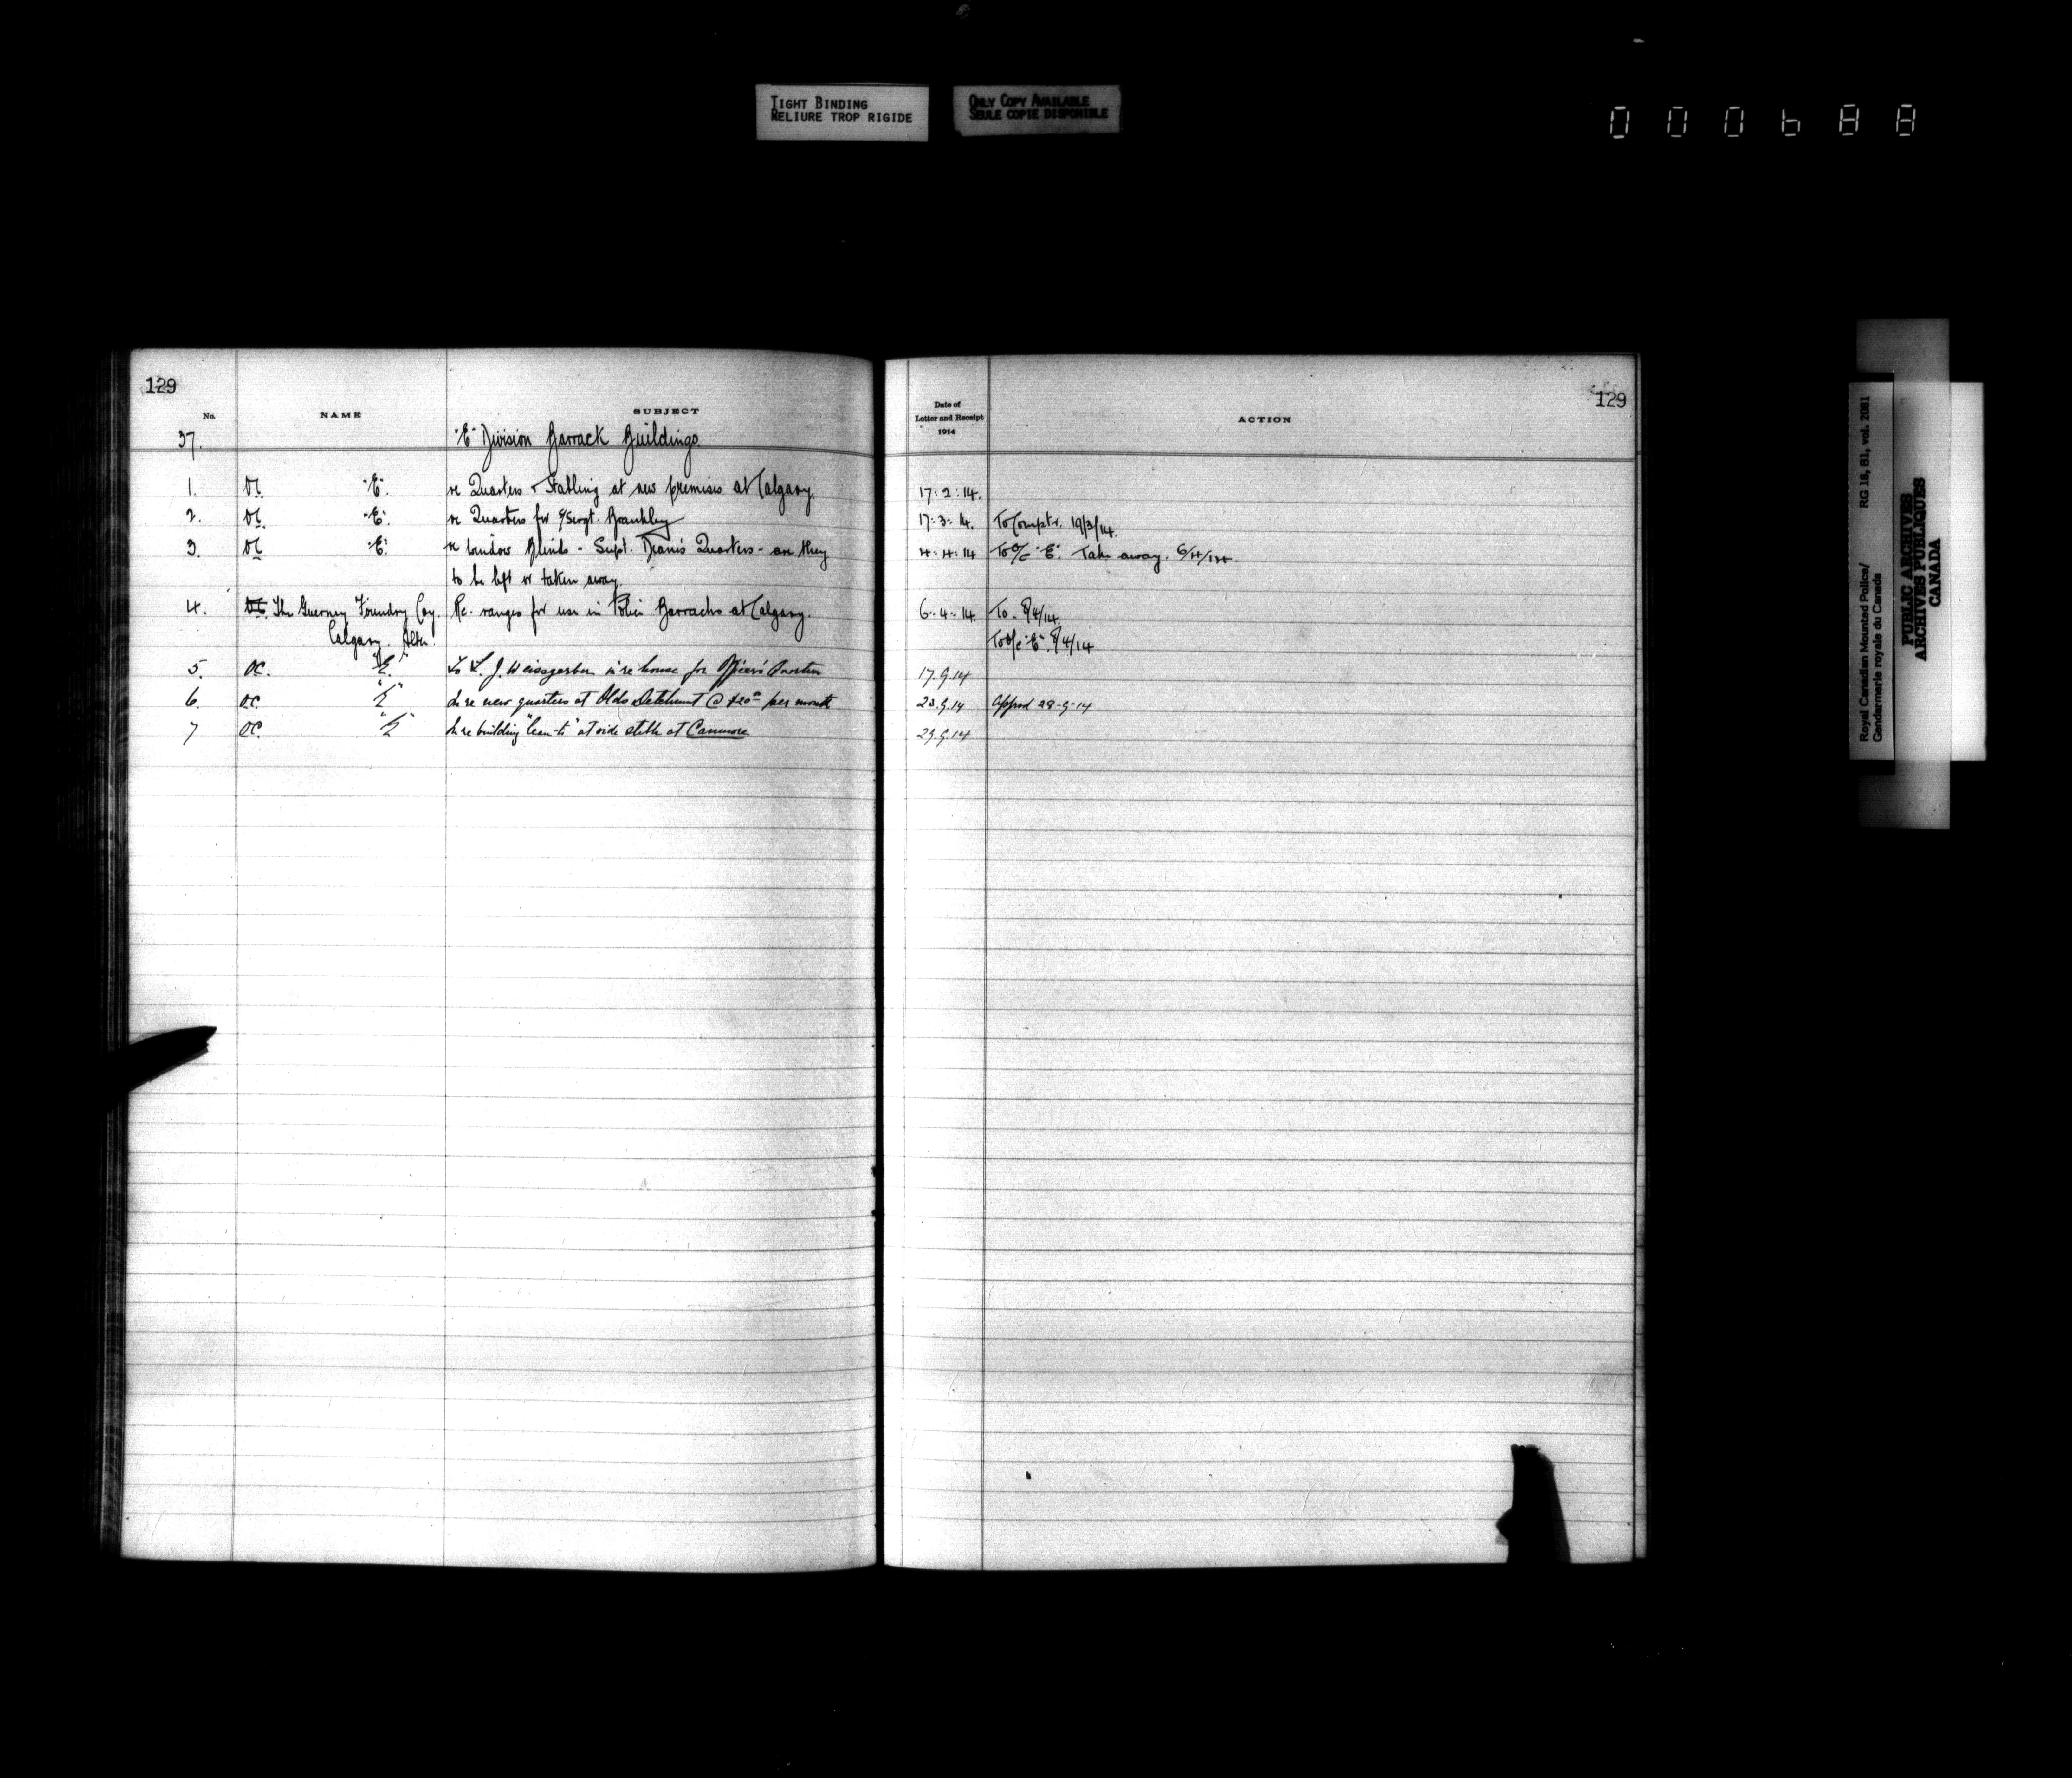 TIGHT BINDING
RELIURE TROP RIGIDE
ONLY COPY AVAILABLE
SEULE COPIE DISPONIBLE
000688
129
No. NAME SUBJECT
37. "E" Division Barrack Buildings.
1. OC. "E". re Quarters & Stabling at new premises at Calgary.
2. OC. "E". re Quarters for S/Sergt.
3. OC "E". re Window Blinds - Supt. Deane's Quarters - are they
to be left or taken away.
4. The Guerney Foundry Coy. Re. ranges for use in Police Barracks at Calgary.
Calgary. Alta.
5. OC. "E" To L. J. Weissgerber in re house for Officers' Quarters
6. OC. "E" In re new quarters at Olds Detchment @ $20 per month
7 OC. "E" In re building "lean-to" at side stable at Canmore
129
Date of
Letter and Receipt
1914
ACTION
17.2.14.
17.3.14. To Comptr. 19/3/14.
4.4.14 To O/C "E". Take away. 6/4/14.
6.4.14 To. 8/4/14.
To O/C "E". 8/4/14
17.9.14
23.9.14 Approd 28-9-14
29.9.14
Royal Canadian Mounted Police/
Gendarmerie royale du Canada
RG 18, B1, vol. 2081
PUBLIC ARCHIVES
ARCHIVES PUBLIQUES
CANADA